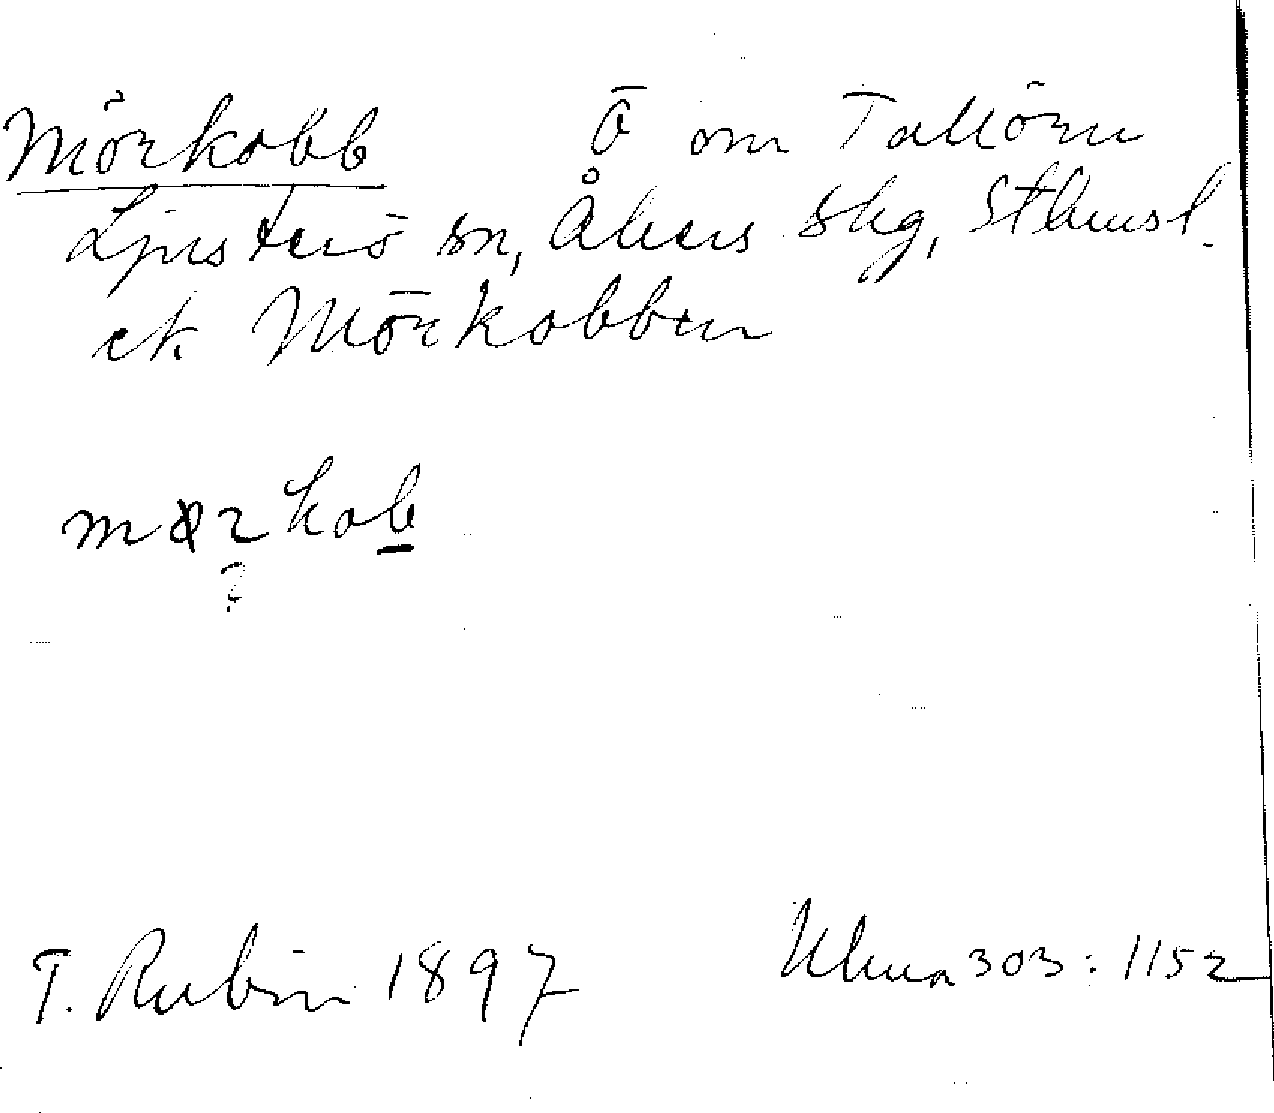 Mörkobb Ö om Tallörn
Ljusterö sn, Åkers skg, Sthmsl.
ek. Mörkobben
mörkob
?
T. Rubin 1897 Ulma 303:1152